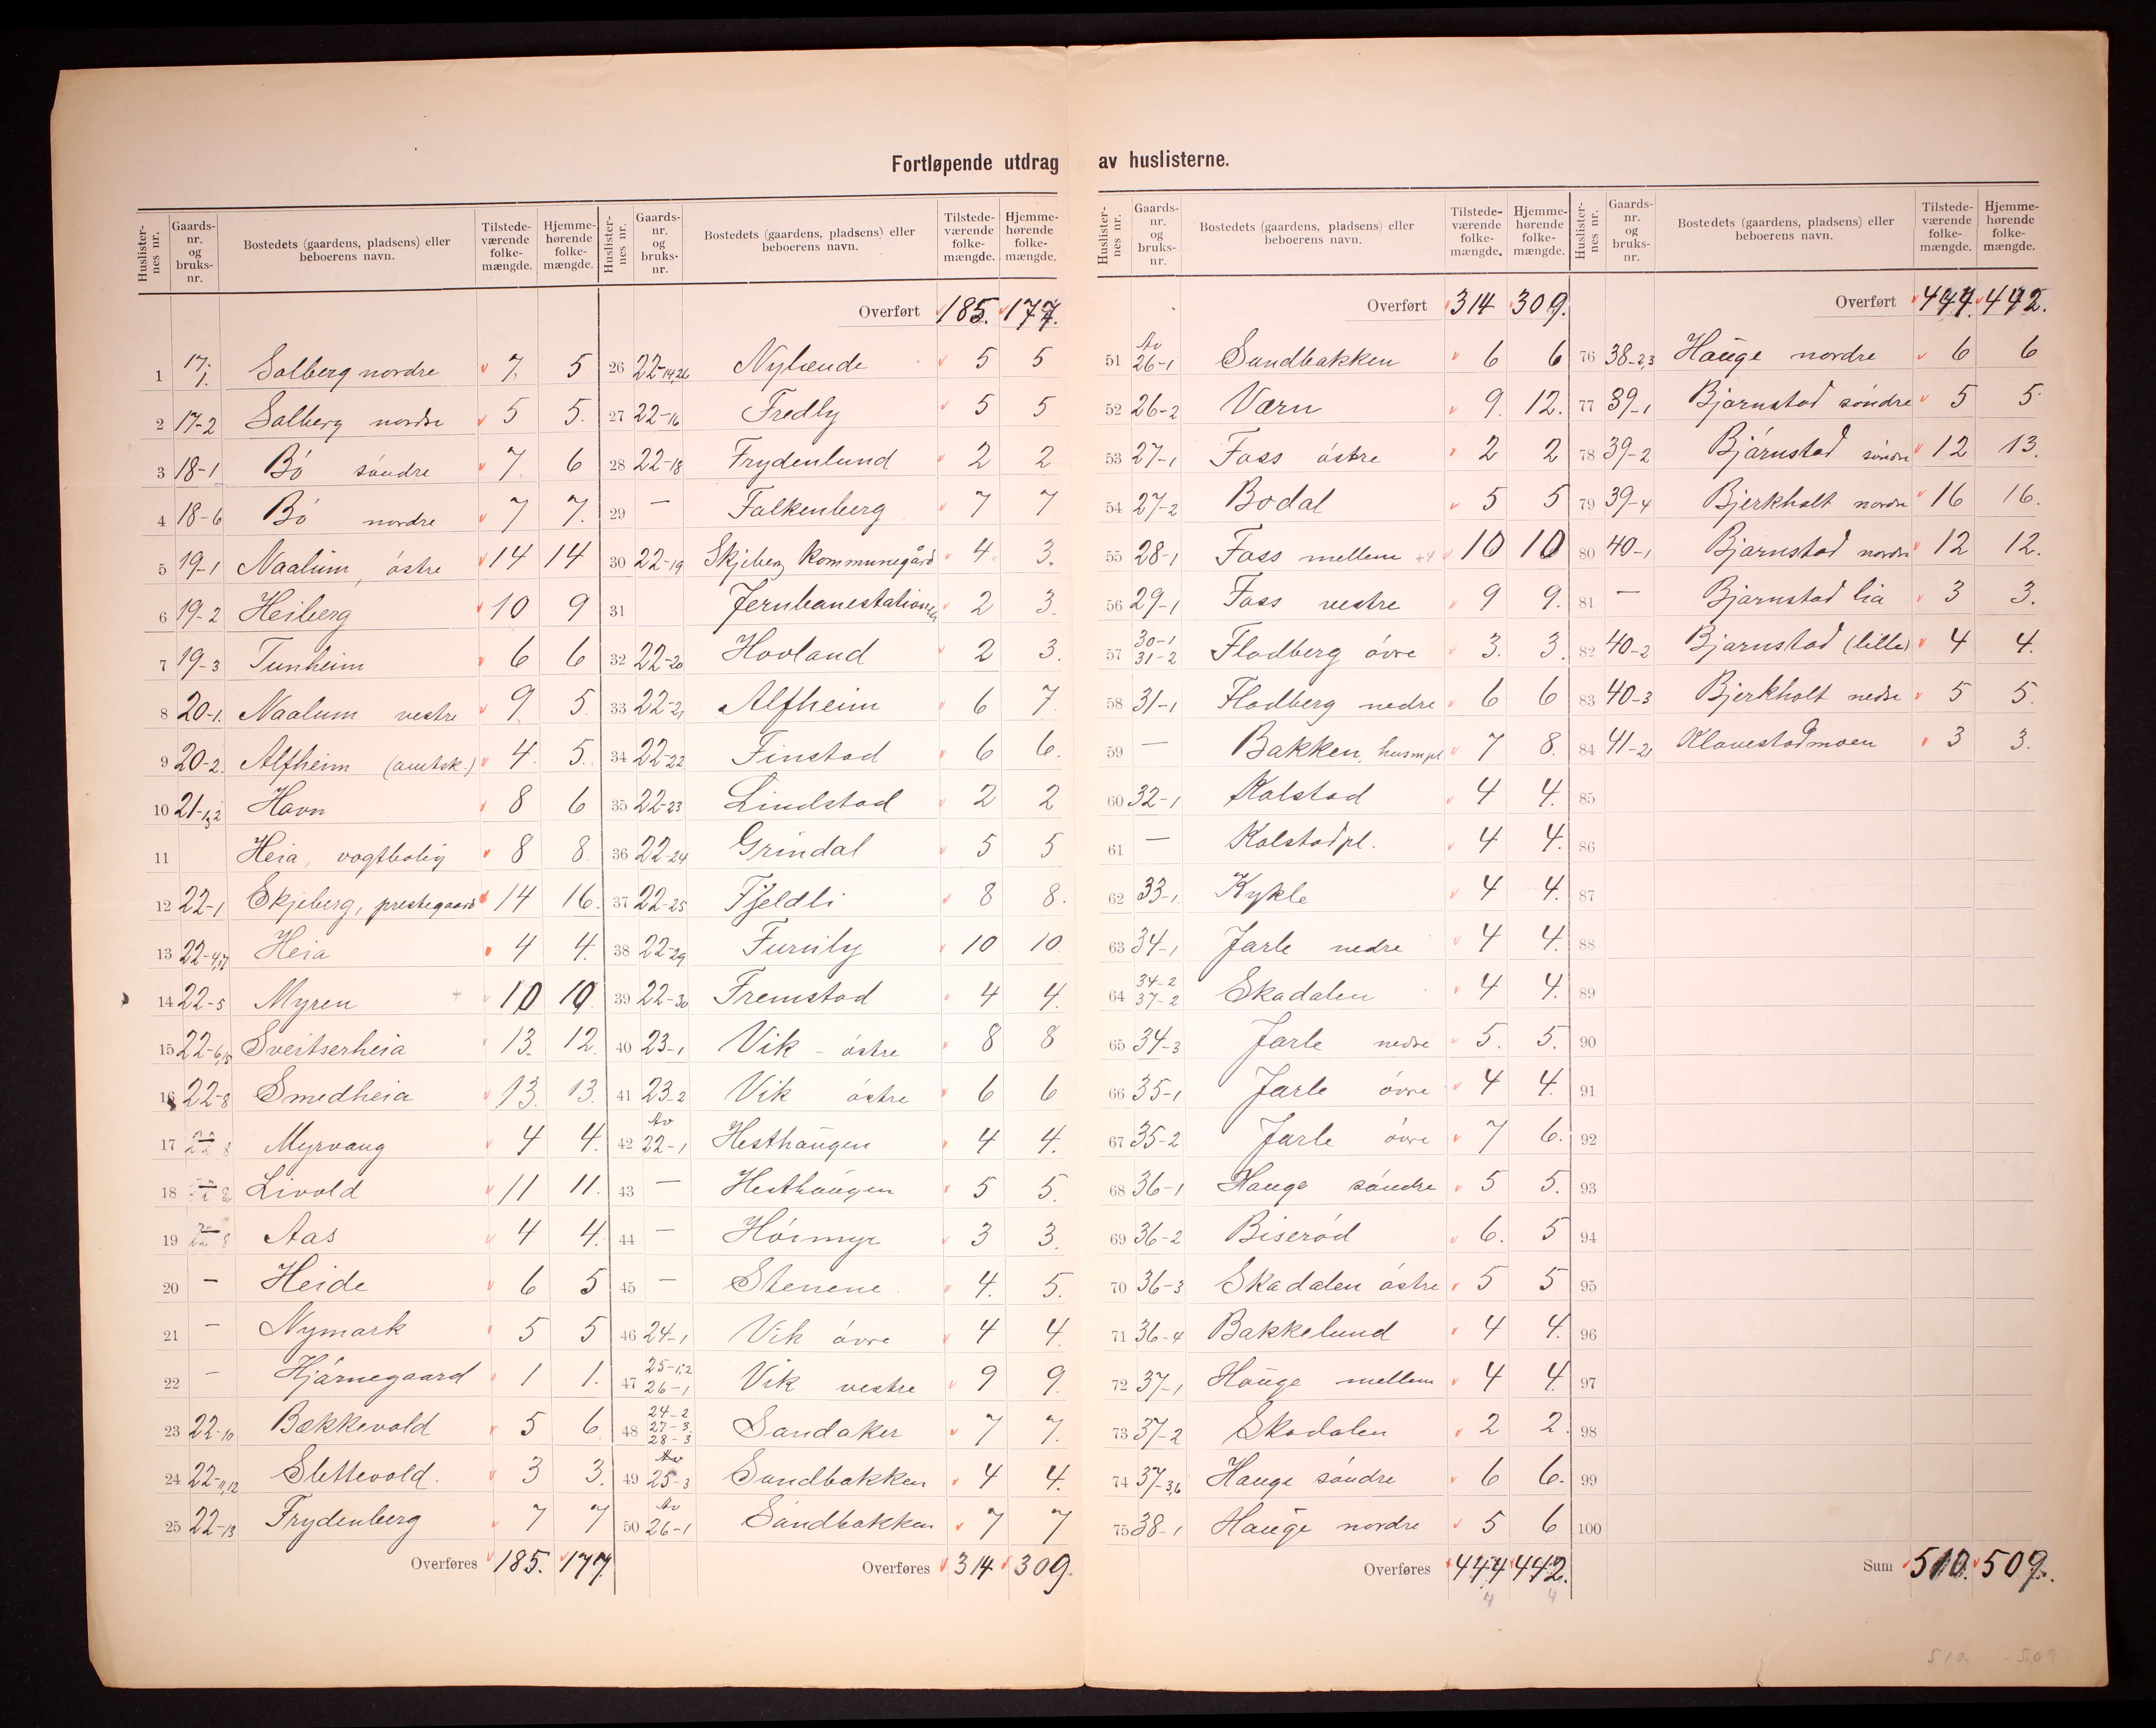 Fortløpende utdrag av huslisterne.
Huslister-nes nr. Gaards-nr. og bruks-nr. Bostedets (gaardens, pladsens) eller beboerens navn. Tilstede-værende folke-mængde. Hjemme-hørende folke-mængde.
1 17-1. Solberg nordre 7. 5
2 17-2 Solberg nordre 5 5.
3 18-1 Bö söndre 7. 6
4 18-6 Bö nordre 7 7.
5 19-1 Naalum, östre 14 14
6 19-2 Heiberg 10 9
7 19-3 Tunheim 6 6
8 20-1. Naalum vestre 9. 5.
9 20-2. Alfheim (amtsk.) 4. 5.
10 21-1,32 Havn 8 6
11 Heia, vogtbolig 8 8.
12 22-1 Skjeberg, prestegaard 14 16.
13 22-4,17 Heia 4 4.
14 22-5 Myren 10 10.
15 22-6,15 Sveitserheia 13. 12.
16 22-8 Smedheia 13. 13.
17 22-8 Myrvang 4 4.
18 Livold 11 11.
19 22 8 Aas 4 4.
20 - Heide 6 5
21 - Nymark 5 5
22 - Hjörnegaard 1 1.
23 22-10 Bækkevold 5 6
24 22-11,12 Slettevold. 3 3.
25 22-13 Frydenberg 7 7
Overføres 185. 177.
Huslister-nes nr. Gaards-nr. og bruks-nr. Bostedets (gaardens, pladsens) eller beboerens navn. Tilstede-værende folke-mængde. Hjemme-hørende folke-mængde.
Overført 185. 177.
26 22-14,26 Nylænde 5 5
27 22-16 Fredly 5 5
28 22-18 Frydenlund 2 2
29 — Falkenberg 7 7
30 22-19 Skjeberg kommunegård 4. 3.
31 Jernbanestationen 2 3.
32 22-20 Hovland 2 3.
33 22-21 Alfheim 6 7.
34 22-22 Finstad 6 6.
35 22-23 Lindstad 2 2
36 22-24 Grindal 5 5
37 22-25 Fjeldli 8 8.
38 22-29 Furuly 10 10.
39 22-30 Fremstad 4 4.
40 23-1 Vik - östre 8 8
41 23-2 Vik östre 6 6
42 Av 22-1 Hesthaugen 4 4.
43 — Hesthaugen 5 5.
44 — Höimyr 3 3.
45 — Stenene 4. 5.
46 24-1 Vik övre 4 4.
47 25-1,2 26-1 Vik vestre 9 9.
48 24-2 27-3 28-3 Sandaker 7 7.
49 Av 25-3 Sandbakken 4 4.
50 Av 26-1 Sandbakken 7 7
Overføres 314 309.
Huslister-nes nr. Gaards-nr. og bruks-nr. Bostedets (gaardens, pladsens) eller beboerens navn. Tilstede-værende folke-mængde. Hjemme-hørende folke-mængde.
Overført 314 309.
51 Av 26-1 Sandbakken 6 6
52 26-2 Værn 9. 12.
53 27-1 Foss östre 2 2
54 27-2 Bodal 5 5
55 28-1 Foss mellem +4 10 10
56 29-1 Foss vestre 9 9.
57 30-1 31-2 Flodberg övre 3. 3.
58 31-1 Flodberg nedre 6 6
59 — Bakken, husmpl 7 8.
60 32-1 Kolstad 4 4.
61 — Kolstadpl. 4 4.
62 33-1. Kykle 4 4.
63 34-1 Jarle nedre 4 4.
64 34-2 37-2 Skadalen 4 4.
65 34-3 Jarle nedre 5. 5.
66 35-1 Jarle övre 4 4.
67 35-2 Jarle övre 7 6.
68 36-1 Hauge söndre 5 5.
69 36-2 Biseröd 6. 5
70 36-3 Skadalen östre 5 5
71 36-4 Bakkelund 4 4.
72 37-1 Hauge mellem 4 4.
73 37-2 Skadalen 2 2.
74 37-3,6 Hauge söndre 6 6.
75 38-1 Hauge nordre 5 6
Overføres 444 442.
4 4
Huslister-nes nr. Gaards-nr. og bruks-nr. Bostedets (gaardens, pladsens) eller beboerens navn. Tilstede-værende folke-mængde. Hjemme-hørende folke-mængde.
Overført 444. 442.
76 38-2,3 Hauge nordre 6 6
77 39-1 Bjørnstad söndre 5 5.
78 39-2 Bjørnstad söndre 12 13.
79 39-4 Bjerkholt nordre 16 16.
80 40-1 Bjørnstad nordre 12 12.
81 — Bjørnstad lia 3 3.
82 40-2 Bjørnstad (lille) 4 4.
83 40-3 Bjerkholt nedre 5 5.
84 41-21 Klavestadmoen 3 3.
85
86
87
88
89
90
91
92
93
94
95
96
97
98
99
100
Sum 510. 509.
510 - 509